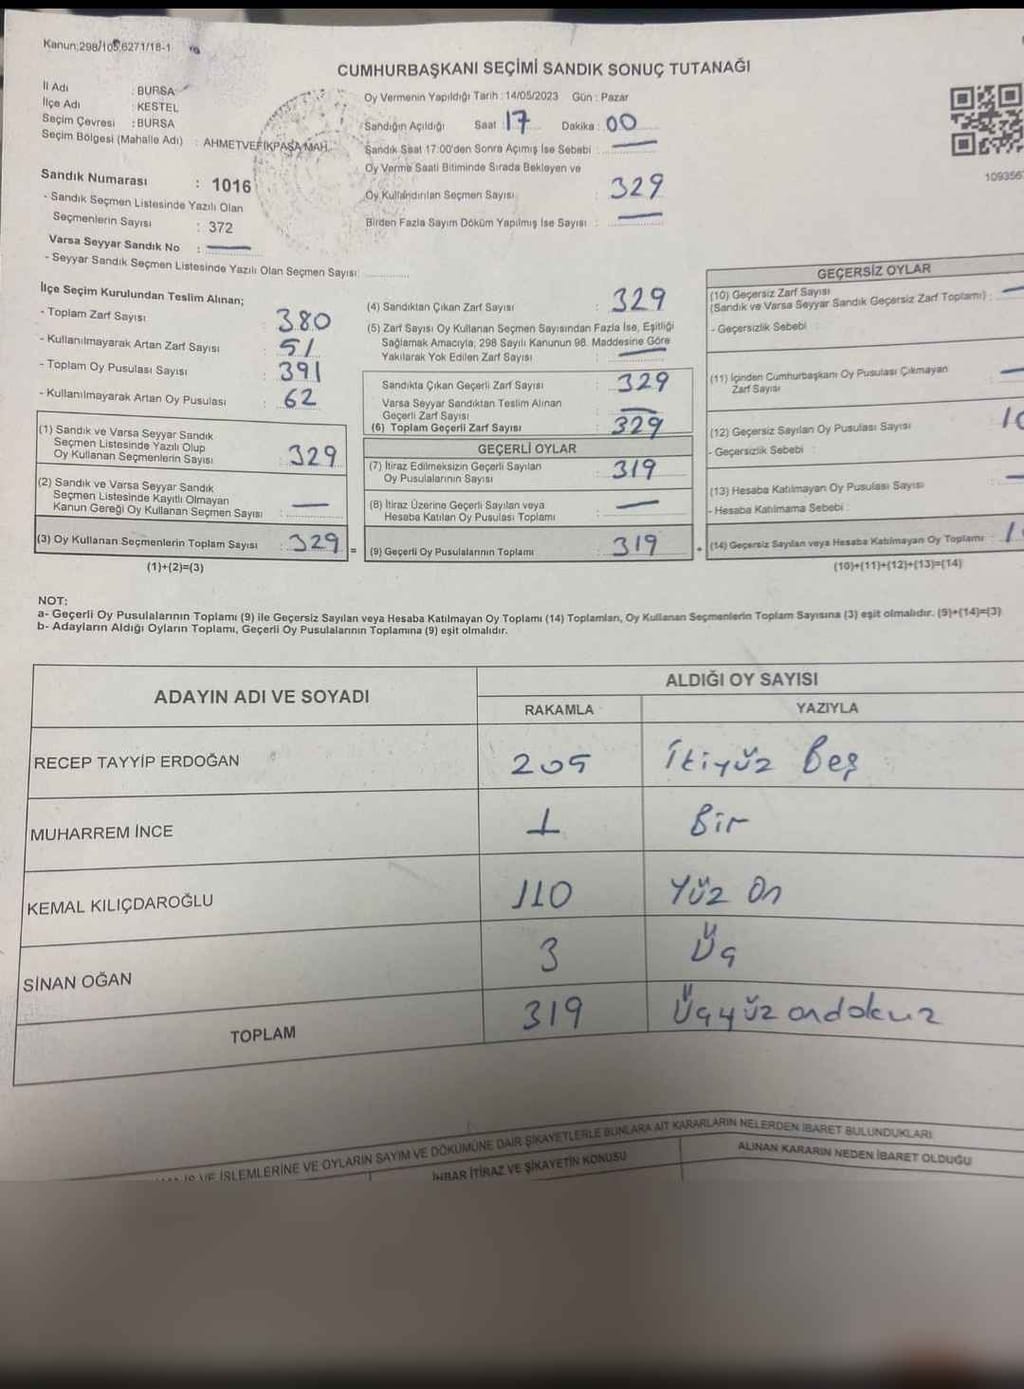 Kanun:298/105,6271/18-1
CUMHURBAŞKANI SEÇİMİ SANDIK SONUÇ TUTANAĞI
İl Adı : BURSA
İlçe Adı : KESTEL
Seçim Çevresi : BURSA
Seçim Bölgesi (Mahalle Adı) : AHMETVEFİKPAŞA MAH.
Sandık Numarası : 1016
- Sandık Seçmen Listesinde Yazılı Olan
Seçmenlerin Sayısı : 372
Varsa Seyyar Sandık No : —
- Seyyar Sandık Seçmen Listesinde Yazılı Olan Seçmen Sayısı:
Oy Vermenin Yapıldığı Tarih : 14/05/2023 Gün : Pazar
Sandığın Açıldığı Saat : 17 Dakika : 00
Sandık Saat 17:00'den Sonra Açımış İse Sebebi : —
Oy Verme Saati Bitiminde Sırada Bekleyen ve
Oy Kullandırılan Seçmen Sayısı : 329
Birden Fazla Sayım Döküm Yapılmış İse Sayısı : —
109356
İlçe Seçim Kurulundan Teslim Alınan;
- Toplam Zarf Sayısı : 380
- Kullanılmayarak Artan Zarf Sayısı : 51
- Toplam Oy Pusulası Sayısı : 391
- Kullanılmayarak Artan Oy Pusulası : 62
(1) Sandık ve Varsa Seyyar Sandık
Seçmen Listesinde Yazılı Olup
Oy Kullanan Seçmenlerin Sayısı : 329
(2) Sandık ve Varsa Seyyar Sandık
Seçmen Listesinde Kayıtlı Olmayan
Kanun Gereği Oy Kullanan Seçmen Sayısı : —
(3) Oy Kullanan Seçmenlerin Toplam Sayısı : 329 =
(1)+(2)=(3)
(4) Sandıktan Çıkan Zarf Sayısı : 329
(5) Zarf Sayısı Oy Kullanan Seçmen Sayısından Fazla İse, Eşitliği
Sağlamak Amacıyla, 298 Sayılı Kanunun 98. Maddesine Göre
Yakılarak Yok Edilen Zarf Sayısı : —
Sandıkta Çıkan Geçerli Zarf Sayısı : 329
Varsa Seyyar Sandıktan Teslim Alınan
Geçerli Zarf Sayısı : —
(6) Toplam Geçerli Zarf Sayısı : 329
GEÇERLİ OYLAR
(7) İtiraz Edilmeksizin Geçerli Sayılan
Oy Pusulalarının Sayısı : 319
(8) İtiraz Üzerine Geçerli Sayılan veya
Hesaba Katılan Oy Pusulası Toplamı : —
(9) Geçerli Oy Pusulalarının Toplamı : 319 +
GEÇERSİZ OYLAR
(10) Geçersiz Zarf Sayısı
(Sandık ve Varsa Seyyar Sandık Geçersiz Zarf Toplamı) : —
- Geçersizlik Sebebi :
(11) İçinden Cumhurbaşkanı Oy Pusulası Çıkmayan
Zarf Sayısı : —
(12) Geçersiz Sayılan Oy Pusulası Sayısı :
- Geçersizlik Sebebi :
(13) Hesaba Katılmayan Oy Pusulası Sayısı : —
- Hesaba Katılmama Sebebi :
(14) Geçersiz Sayılan veya Hesaba Katılmayan Oy Toplamı :
(10)+(11)+(12)+(13)=(14)
NOT:
a- Geçerli Oy Pusulalarının Toplamı (9) ile Geçersiz Sayılan veya Hesaba Katılmayan Oy Toplamı (14) Toplamları, Oy Kullanan Seçmenlerin Toplam Sayısına (3) eşit olmalıdır. (9)+(14)=(3)
b- Adayların Aldığı Oyların Toplamı, Geçerli Oy Pusulalarının Toplamına (9) eşit olmalıdır.
ADAYIN ADI VE SOYADI
ALDIĞI OY SAYISI
RAKAMLA YAZIYLA
RECEP TAYYİP ERDOĞAN 205 İkiyüz Beş
MUHARREM İNCE 1 Bir
KEMAL KILIÇDAROĞLU 110 Yüz On
SİNAN OĞAN 3 Üç
TOPLAM 319 Üçyüz ondokuz
VE İŞLEMLERİNE VE OYLARIN SAYIM VE DÖKÜMÜNE DAİR ŞİKAYETLERLE BUNLARA AİT KARARLARIN NELERDEN İBARET BULUNDUKLARI
İHBAR İTİRAZ VE ŞİKAYETİN KONUSU
ALINAN KARARIN NEDEN İBARET OLDUĞU